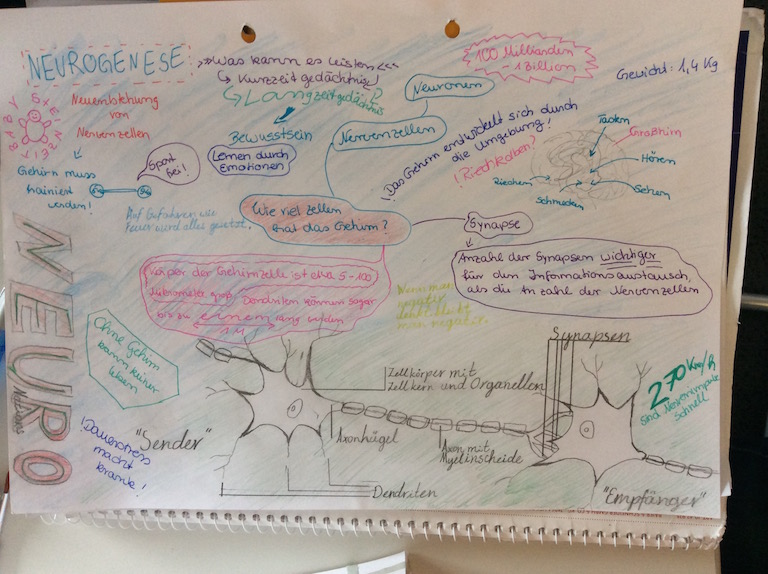 NEUROGENESE
BABY
Neuentstehung
von
Nervenzellen
Gehirn muss
trainiert
werden!
Sport
frei!
>>Was kann es leisten<<
↳ Kurzzeitgedächtnis!
↳ Langzeitgedächtnis?
Bewusstsein
Lernen durch
Emotionen
100 Milliarden
- 1 Billion
Gewicht: 1,4 Kg
Neuronen
Nervenzellen
!Das Gehirn entwickelt sich durch
die Umgebung!
!Riechkolben?
Tasten
Großhirn
Hören
Sehen
Schmecken
Riechen
Auf Gefahren wie
Feuer wird alles gesetzt.
Wie viel Zellen
hat das Gehirn?
Synapse
Anzahl der Synapsen wichtiger
für den Informationsaustausch,
als die Anzahl der Nervenzellen
Körper der Gehirnzelle ist etwa 5-100
Mikrometer groß, Dendriten können sogar
bis zu einem lang werden
1 M
Wenn man
negativ
denkt bleibt
man negativ.
NEURO
Ohne Gehirn
kann keiner
leben
!Dauerstress
macht
krank!
"Sender"
Zellkörper mit
Zellkern und Organellen
Axonhügel
Axon mit
Myelinscheide
Dendriten
Synapsen
"Empfänger"
270 Km/h
sind Nervenimpulse
schnell